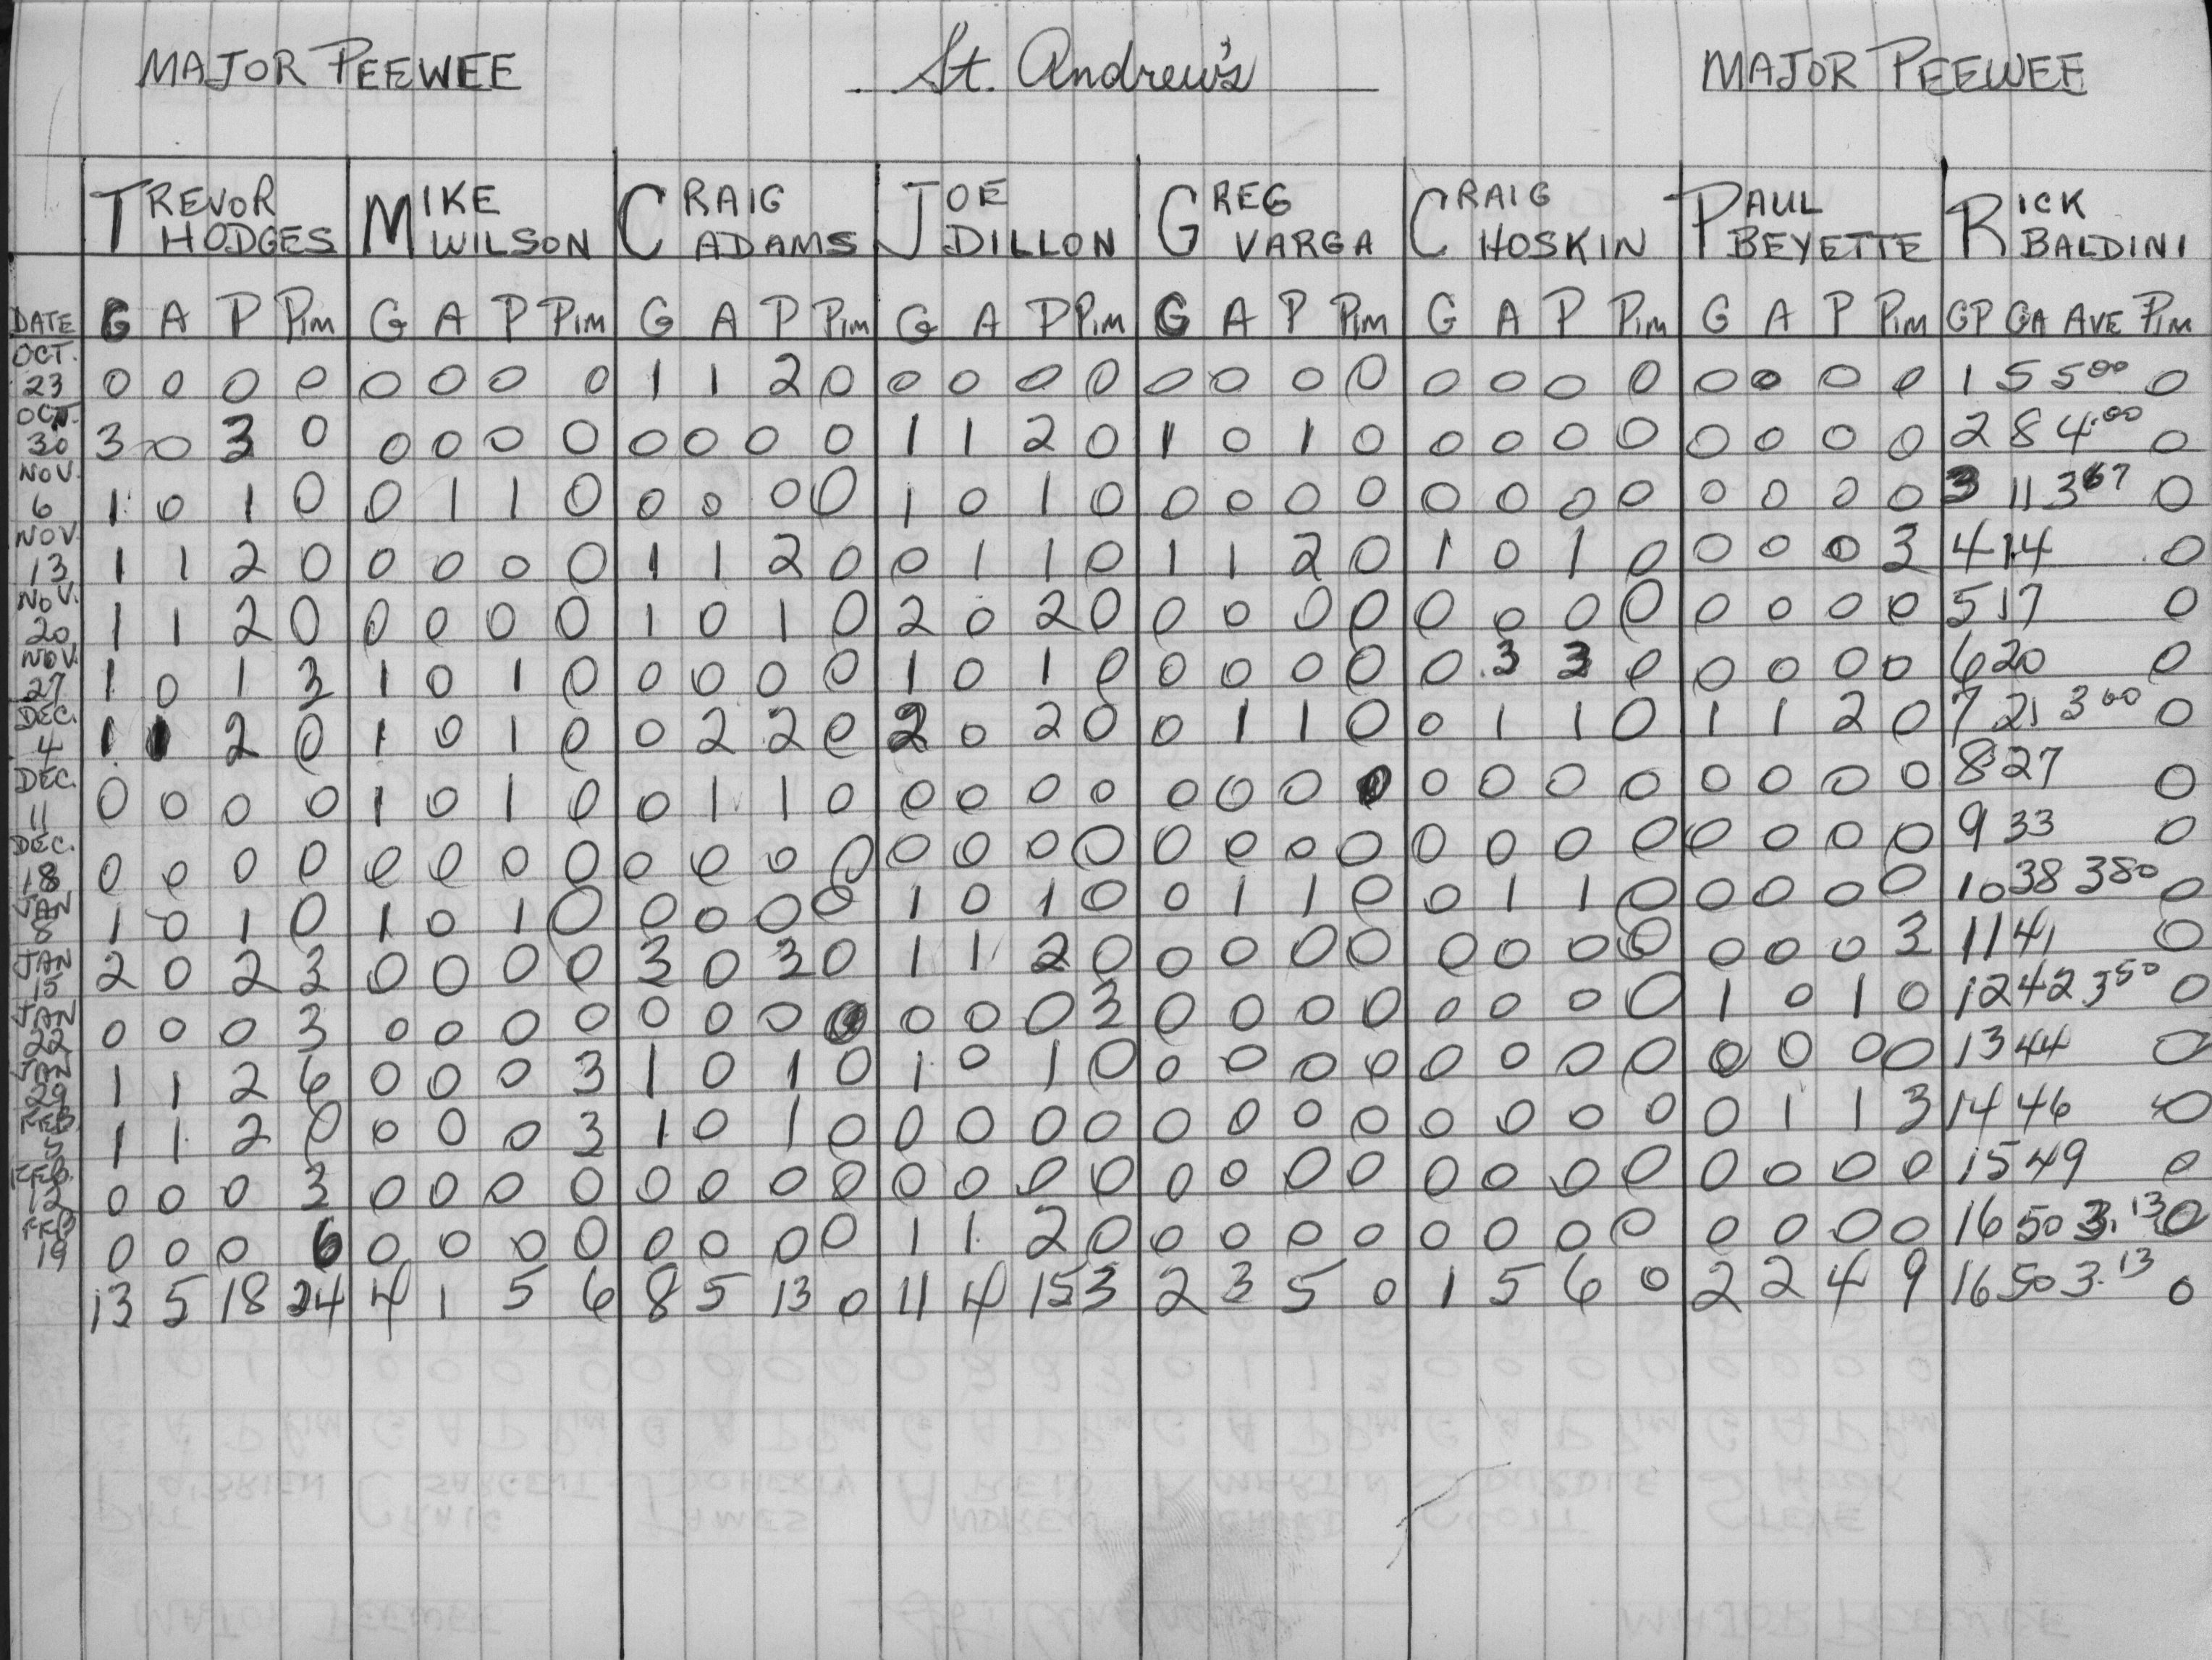 MAJOR PEEWEE St. Andrew's MAJOR PEEWEE
TREVOR HODGES MIKE WILSON CRAIG ADAMS JOE DILLON GREG VARGA CRAIG HOSKIN PAUL BEYETTE RICK BALDINI
DATE G A P Pim G A P Pim G A P Pim G A P Pim G A P Pim G A P Pim G A P Pim GP GA AVE Pim
OCT. 23 0 0 0 0 0 0 0 0 1 1 2 0 0 0 0 0 0 0 0 0 0 0 0 0 0 0 0 0 1 5 5.00 0
OCT. 30 3 0 3 0 0 0 0 0 0 0 0 0 1 1 2 0 1 0 1 0 0 0 0 0 0 0 0 0 2 8 4.00 0
NOV. 6 1 0 1 0 0 1 1 0 0 0 0 0 1 0 1 0 0 0 0 0 0 0 0 0 0 0 0 0 3 11 3.67 0
NOV. 13 1 1 2 0 0 0 0 0 1 1 2 0 0 1 1 0 1 1 2 0 1 0 1 0 0 0 0 3 4 14 0
NOV. 20 1 1 2 0 0 0 0 0 1 0 1 0 2 0 2 0 0 0 0 0 0 0 0 0 0 0 0 0 5 17 0
NOV. 27 1 0 1 3 1 0 1 0 0 0 0 0 1 0 1 0 0 0 0 0 0 3 3 0 0 0 0 0 6 20 0
DEC. 4 1 1 2 0 1 0 1 0 0 2 2 0 2 0 2 0 0 1 1 0 0 1 1 0 1 1 2 0 7 21 3 00 0
DEC. 11 0 0 0 0 1 0 1 0 0 1 1 0 0 0 0 0 0 0 0 0 0 0 0 0 0 0 0 0 8 27 0
DEC. 18 0 0 0 0 0 0 0 0 0 0 0 0 0 0 0 0 0 0 0 0 0 0 0 0 0 0 0 0 9 33 0
JAN 8 1 0 1 0 1 0 1 0 0 0 0 0 1 0 1 0 0 1 1 0 0 1 1 0 0 0 0 0 10 38 3 80 0
JAN 15 2 0 2 3 0 0 0 0 3 0 3 0 1 1 2 0 0 0 0 0 0 0 0 0 0 0 0 3 11 41 0
JAN 22 0 0 0 3 0 0 0 0 0 0 0 0 0 0 0 3 0 0 0 0 0 0 0 0 1 0 1 0 12 42 3 50 0
JAN 29 1 1 2 6 0 0 0 3 1 0 1 0 1 0 1 0 0 0 0 0 0 0 0 0 0 0 0 0 13 44 0
FEB 5 1 1 2 0 0 0 0 3 1 0 1 0 0 0 0 0 0 0 0 0 0 0 0 0 0 1 1 3 14 46 0
FEB. 12 0 0 0 3 0 0 0 0 0 0 0 0 0 0 0 0 0 0 0 0 0 0 0 0 0 0 0 0 15 49 0
FEB 19 0 0 0 6 0 0 0 0 0 0 0 0 1 1 2 0 0 0 0 0 0 0 0 0 0 0 0 0 16 50 3.13 0
13 5 18 24 4 1 5 6 8 5 13 0 11 4 15 3 2 3 5 0 1 5 6 0 2 2 4 9 16 50 3.13 0